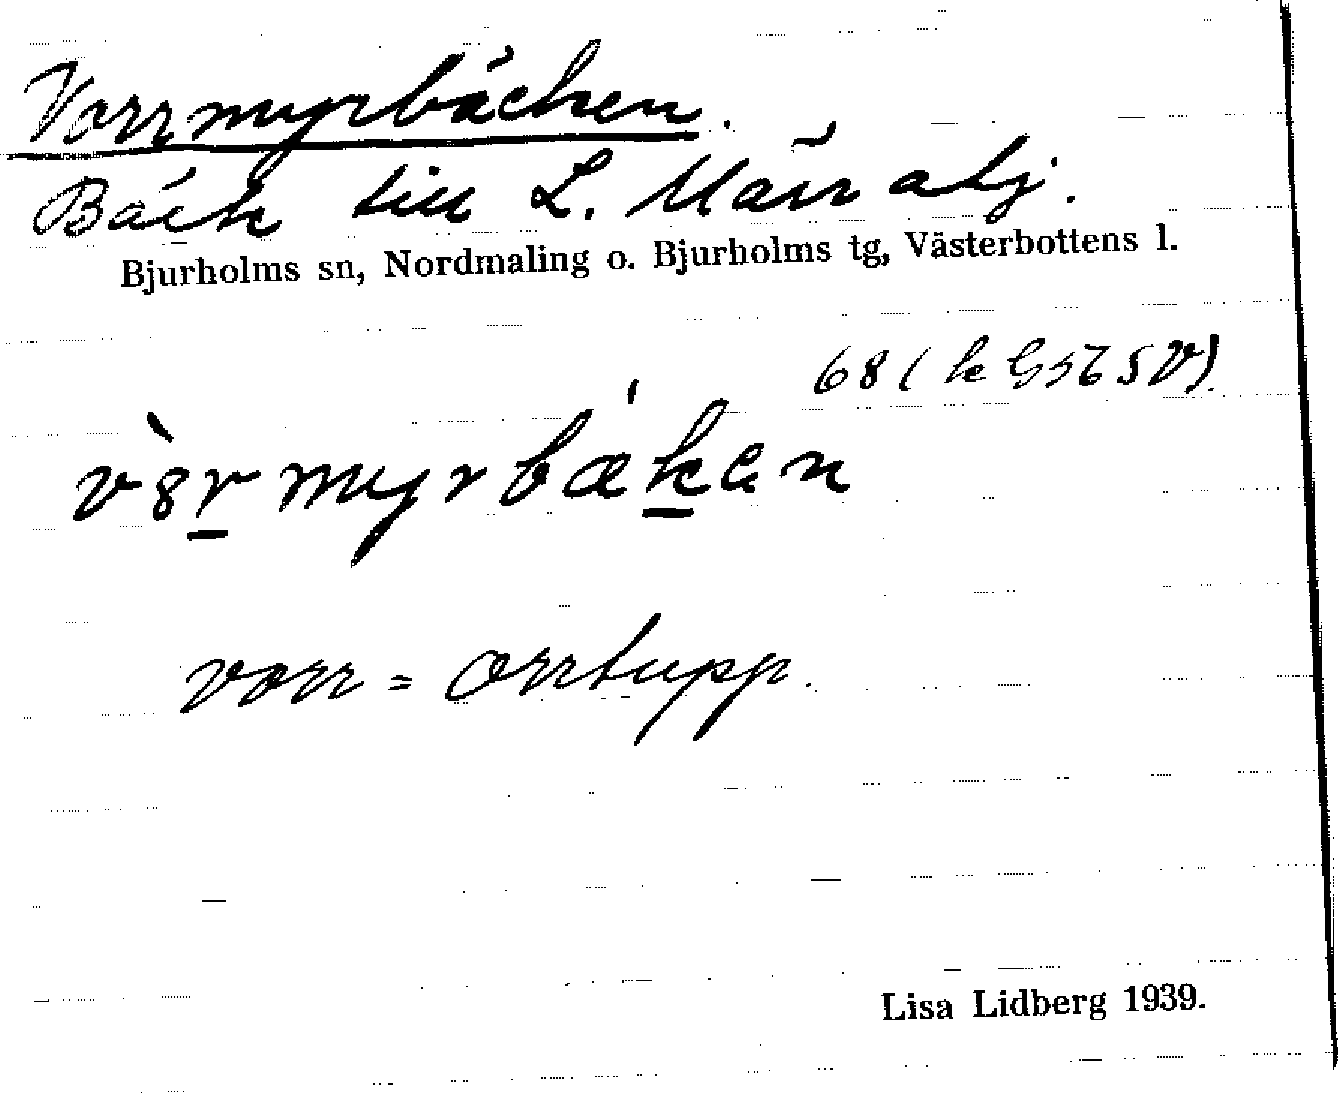 Vorrmyrbäcken.
Bäck till L. Märratj.
Bjurholms sn, Nordmaling o. Bjurholms tg, Västerbottens l.
68 (k G 57 b SV)
vòrmyrbækɐn
vorr = orrtupp.
Lisa Lidberg 1939.